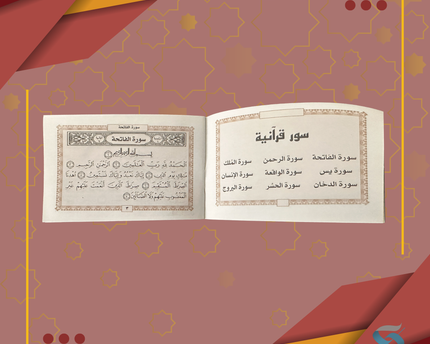 سور قرآنية
سورة الفاتحة سورة الرحمن سورة الملك
سورة يس سورة الواقعة سورة الإنسان
سورة الدخان سورة الحشر سورة البروج
سورة الفاتحة
سورة الفاتحة
الحمد لله رب العالمين الرحمن الرحيم
ملك يوم الدين إياك نعبد وإياك نستعين اهدنا
الصراط المستقيم صراط الذين أنعمت عليهم غير
المغضوب عليهم ولا الضالين
٣